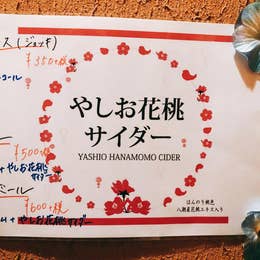 ス(ジョッキ)
¥350+税
コール
やしお花桃
サイダー
YASHIO HANAMOMO CIDER
¥500+税
+やしお花桃
サイダー
ほんのり桃色
八潮産花桃エキス入り
ール
¥600+税
+やしお花桃サイダー